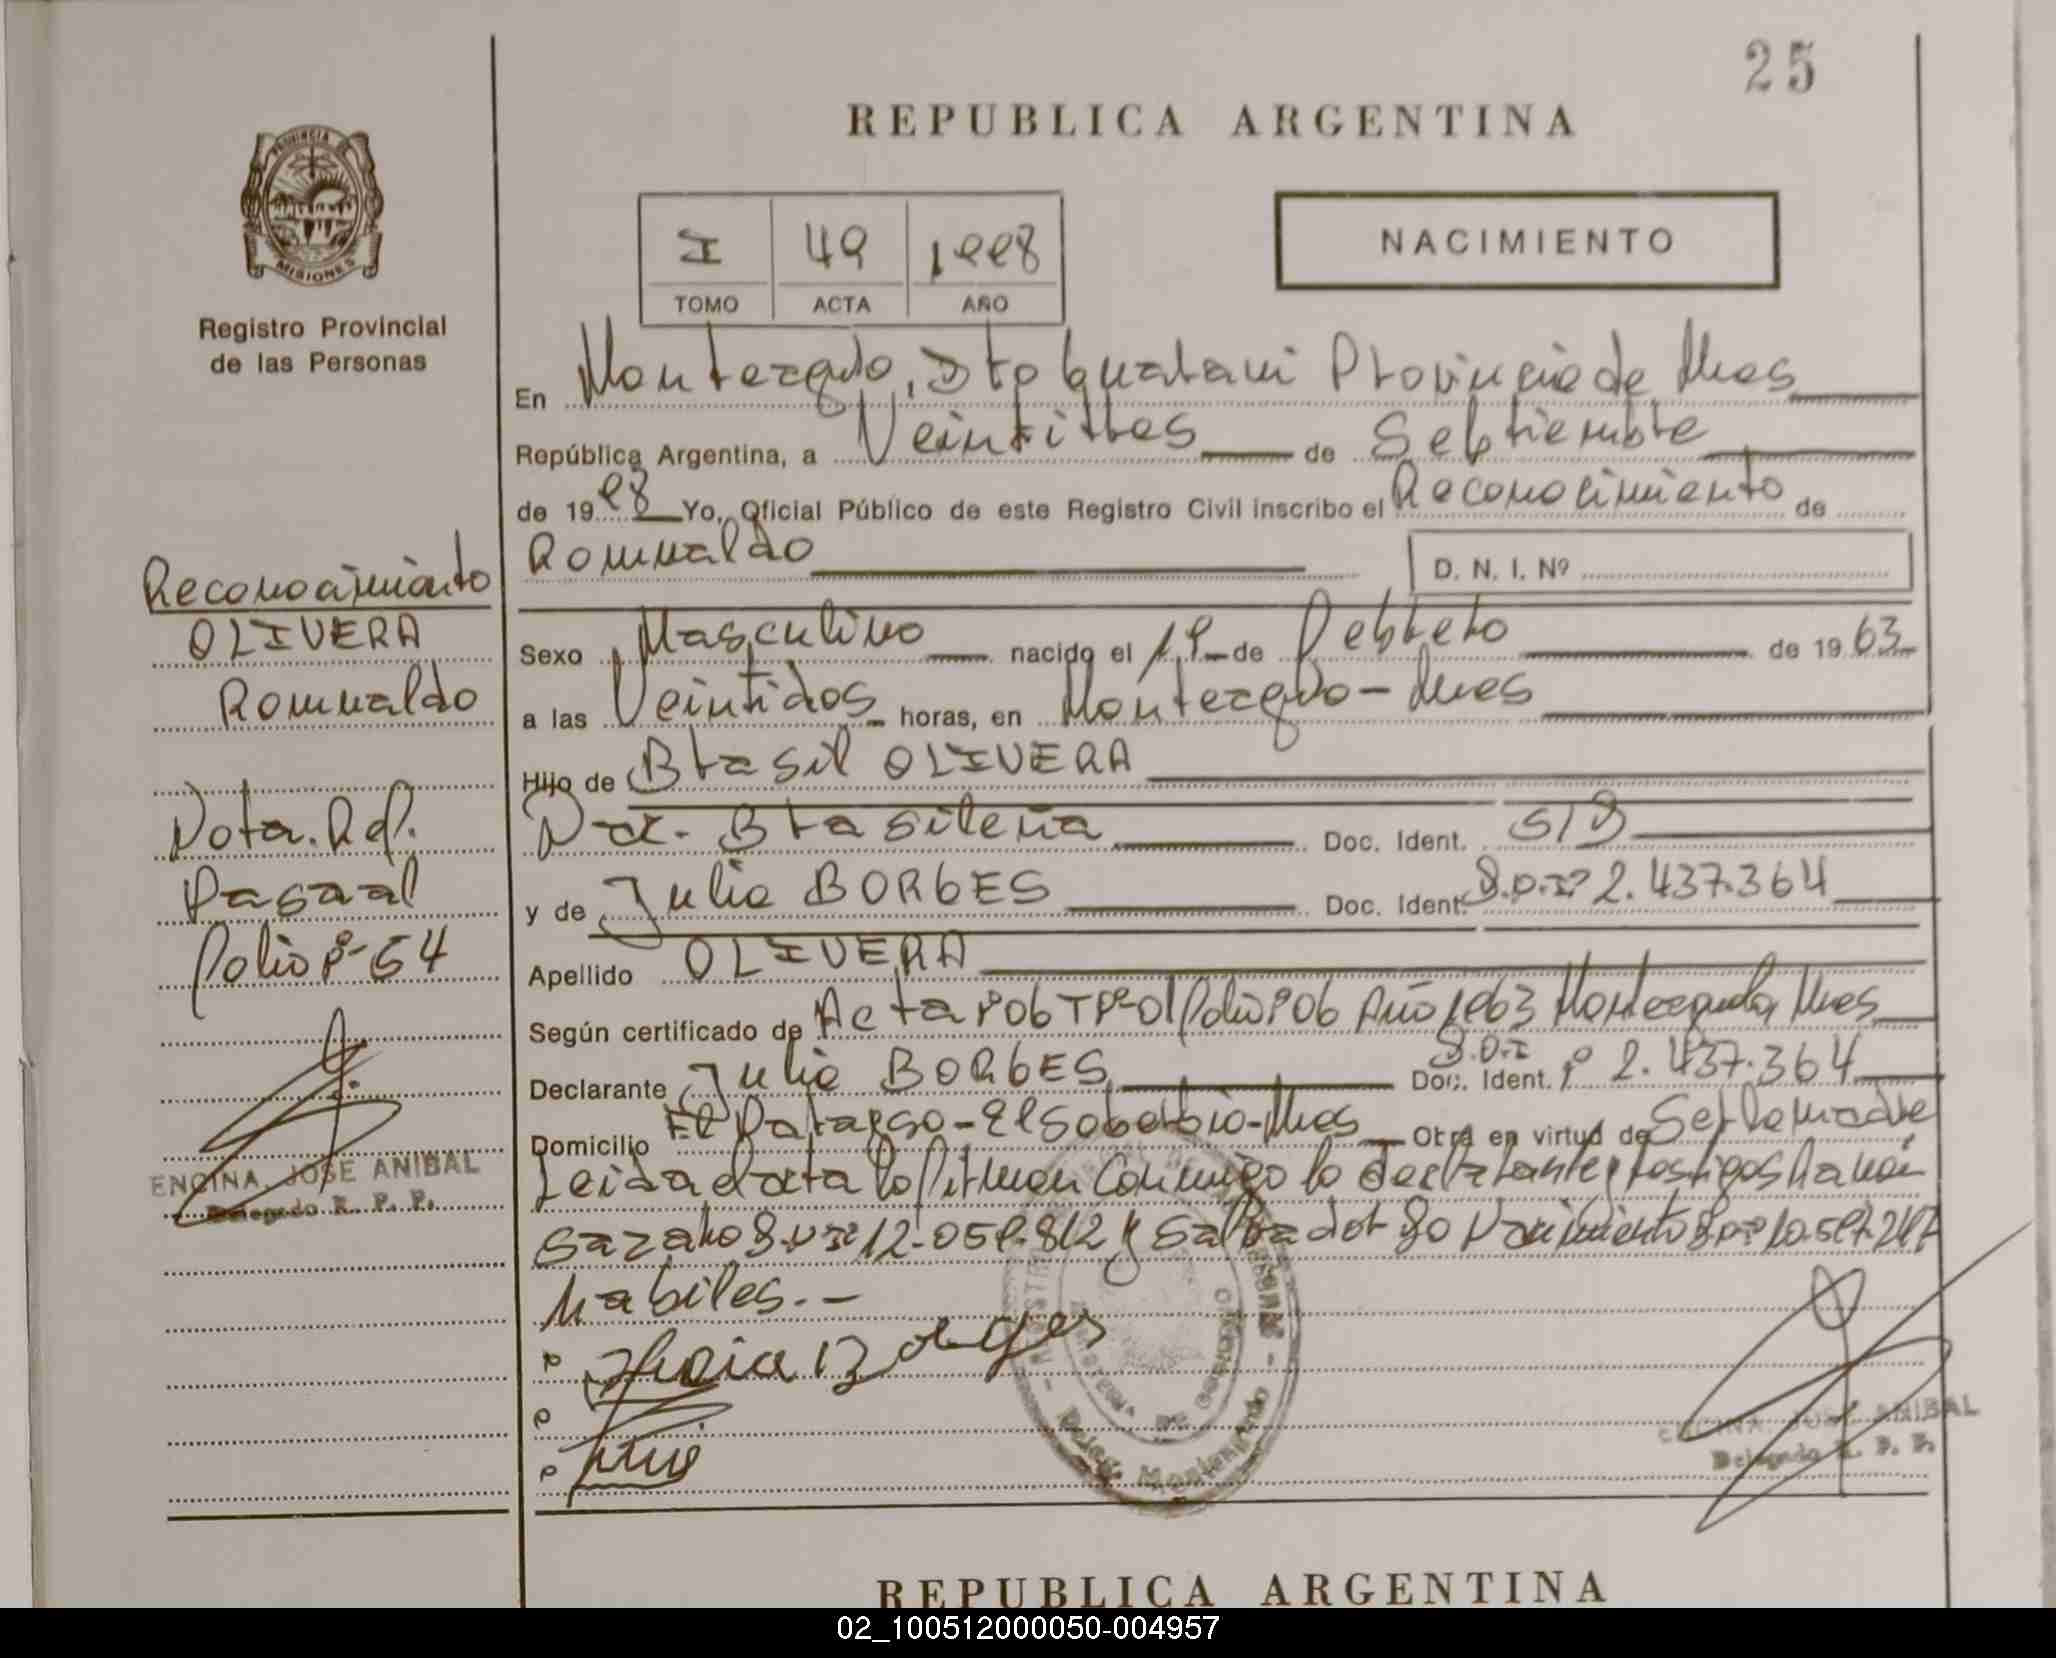 25
REPUBLICA ARGENTINA
PROVINCIA DE
MISIONES
Registro Provincial
de las Personas
I 49 1998
TOMO ACTA AÑO
NACIMIENTO
En Monteagudo, Dto Guarani Provincia de Mnes
República Argentina, a Veintitres de Septiembre
de 19 98 Yo, Oficial Público de este Registro Civil inscribo el Reconocimiento de
Romualdo
D. N. I. Nº
Sexo Masculino nacido el 19 de Febrero de 19 63
a las Veintidos horas, en Monteagudo - Mnes
Hijo de Brasil OLIVERA
Nac. Brasileña Doc. Ident. S/D
y de Julia BORGES Doc. Ident. 2.437.364
Apellido OLIVERA
Según certificado de Acta Nº 06 Tº 01 Folio Nº 06 Año 1963 Monteagudo Mnes
Declarante Julia BORGES Doc. Ident. Nº 2.437.364
Domicilio El Paraiso - El Soberbio - Mnes Obra en virtud de Ser la madre
Leida el acta la firman Conmigo la declarante y testigos Ramón
12.059.812 y Salvador Do Nacimiento
habiles.-
Julia Borges
Reconocimiento
OLIVERA
Romualdo
Nota. Ref.
Folio Nº 54
ENCINA, JOSE ANIBAL
Delegado R. P. P.
Deleg. Monteagudo
ENCINA, JOSE ANIBAL
Delegado R. P. P.
REPUBLICA ARGENTINA
02_100512000050-004957